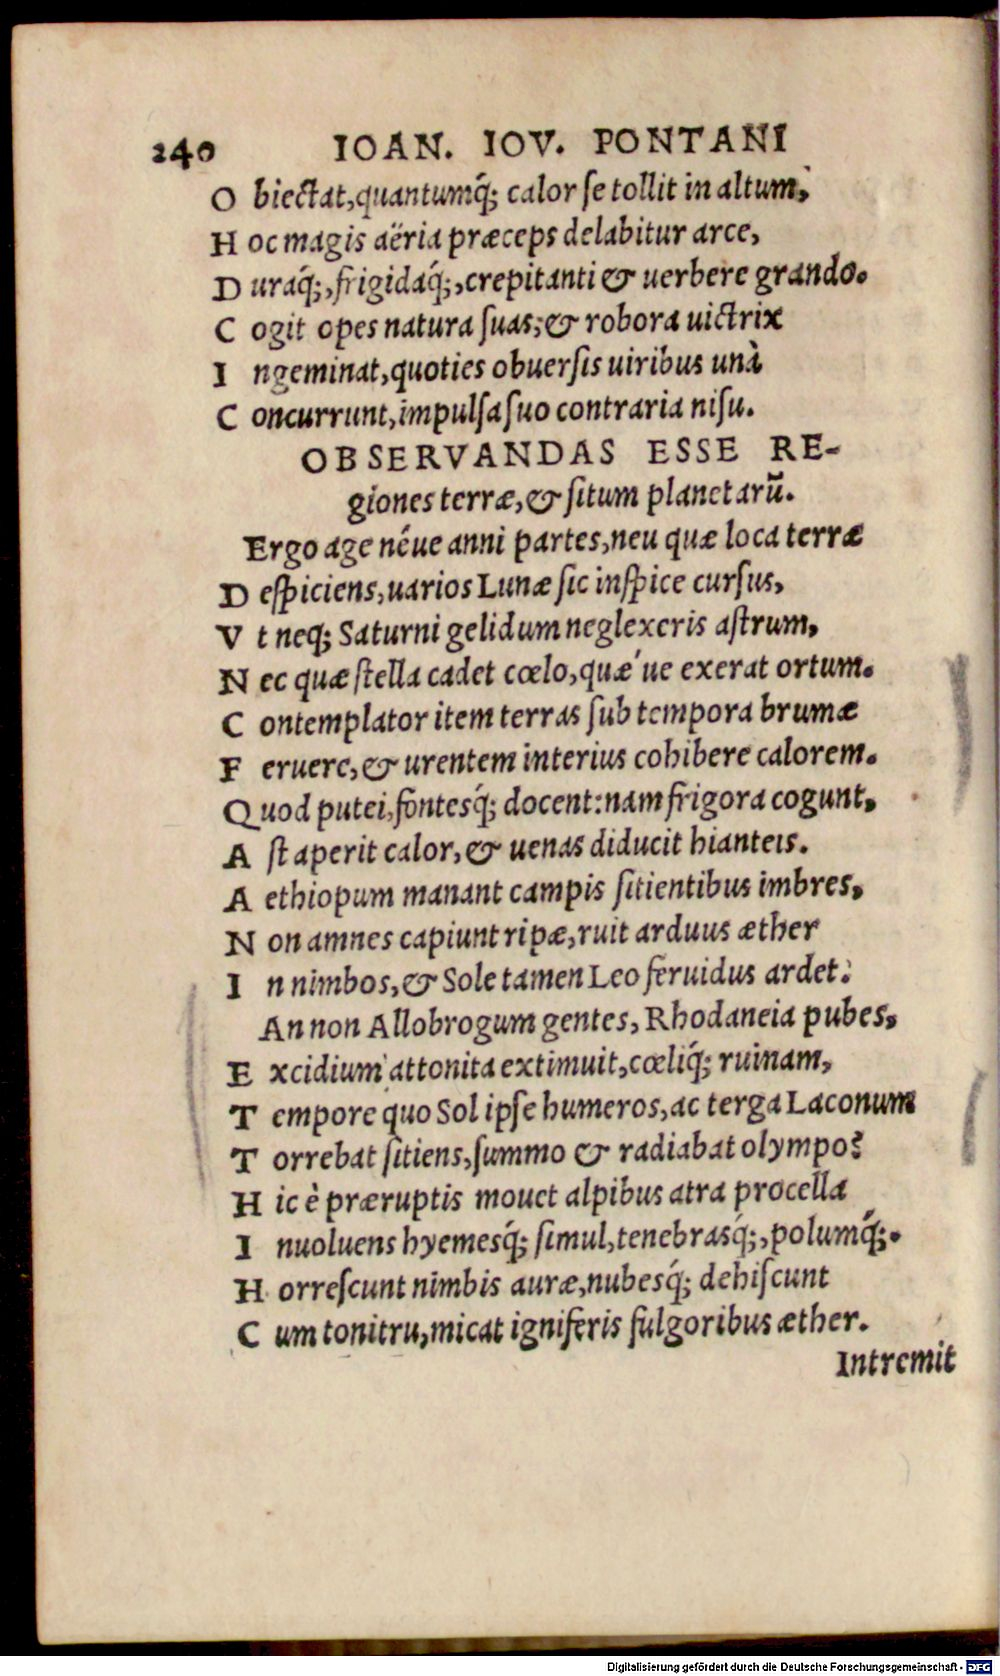 240 IOAN. IOV. PONTANI
O biectat,quantumq́; calor ſe tollit in altum,
H oc magis aëria præceps delabitur arce,
D uraq́;,frigidaq́;,crepitanti & uerbere grando.
C ogit opes natura ſuas;& robora uictrix
I ngeminat,quoties obuerſis uiribus unà
C oncurrunt,impulſa ſuo contraria niſu.
OBSERVANDAS ESSE RE-
giones terræ,& ſitum planetarū.
Ergo age néue anni partes,neu quæ loca terræ
D eſpiciens,uarios Lunæ ſic inſpice curſus,
V t neq; Saturni gelidum neglexeris aſtrum,
N ec quæ ſtella cadet cœlo,quæ´ue exerat ortum.
C ontemplator item terras ſub tempora brumæ
F eruere,& urentem interius cohibere calorem.
Q uod putei,fontesq́; docent:nam frigora cogunt,
A ſt aperit calor,& uenas diducit hianteis.
A ethiopum manant campis ſitientibus imbres,
N on amnes capiunt ripæ,ruit arduus æther
I n nimbos,& Sole tamen Leo feruidus ardet.
An non Allobrogum gentes, Rhodaneia pubes,
E xcidium attonita extimuit,cœliq́; ruinam,
T empore quo Sol ipſe humeros,ac terga Laconum
T orrebat ſitiens,ſummo & radiabat olympo?
H ic è præruptis mouet alpibus atra procella
I nuoluens hyemesq́; ſimul,tenebrasq́;,polumq́;.
H orreſcunt nimbis auræ,nubesq́; dehiſcunt
C um tonitru,micat igniferis fulgoribus æther.
Intremit
Digitalisierung gefördert durch die Deutsche Forschungsgemeinschaft - DFG